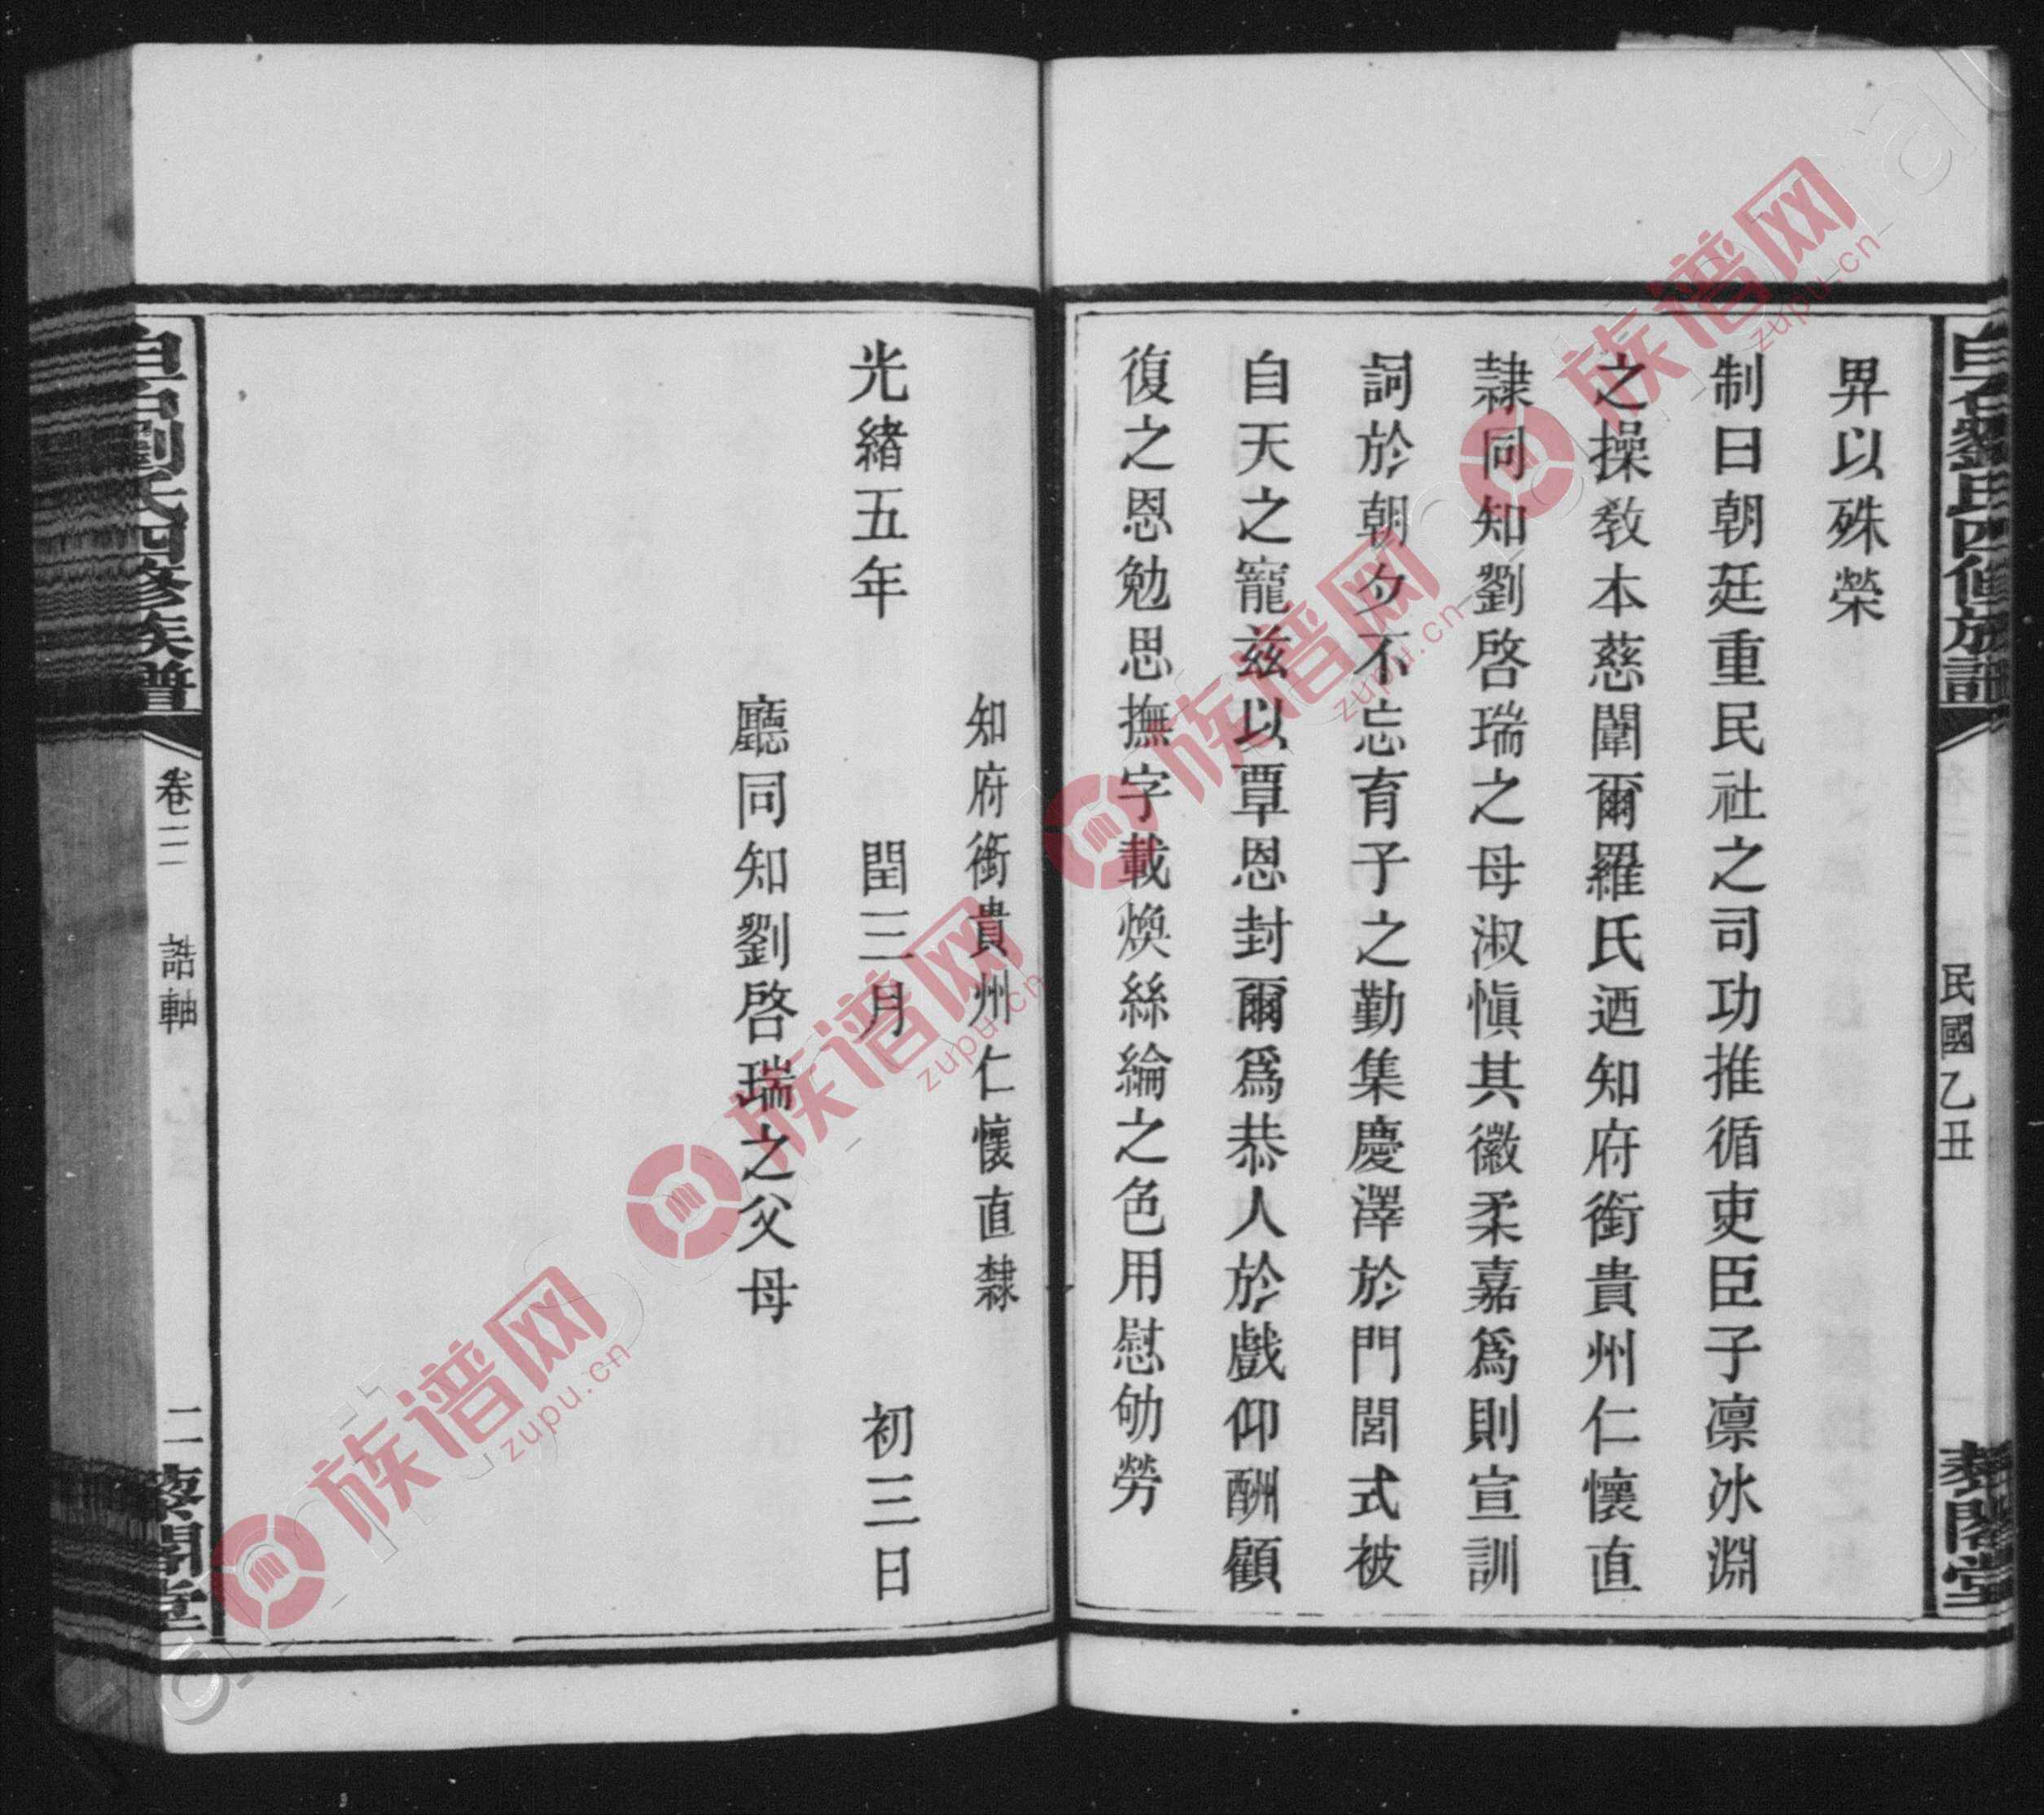 白石劉氏四修族譜
民國乙丑
藜閣堂
畀以殊榮
制曰朝廷重民社之司功推循吏臣子凛冰淵
之操教本慈闈爾羅氏迺知府銜貴州仁懷直
隷同知劉啓瑞之母淑愼其徽柔嘉爲則宣訓
詞於朝夕不忘育子之勤集慶澤於門閭式被
自天之寵兹以覃恩封爾爲恭人於戲仰酬顧
復之恩勉思撫字載煥絲綸之色用慰劬勞
知府銜貴州仁懷直隸
光緒五年 閏三月 初三日
廳同知劉啓瑞之父母
白石劉氏四修族譜
卷三
誥軸
二
藜閣堂
族谱网
zupu.cn
族谱网
zupu.cn
族谱网
zupu.cn
族谱网
zupu.cn